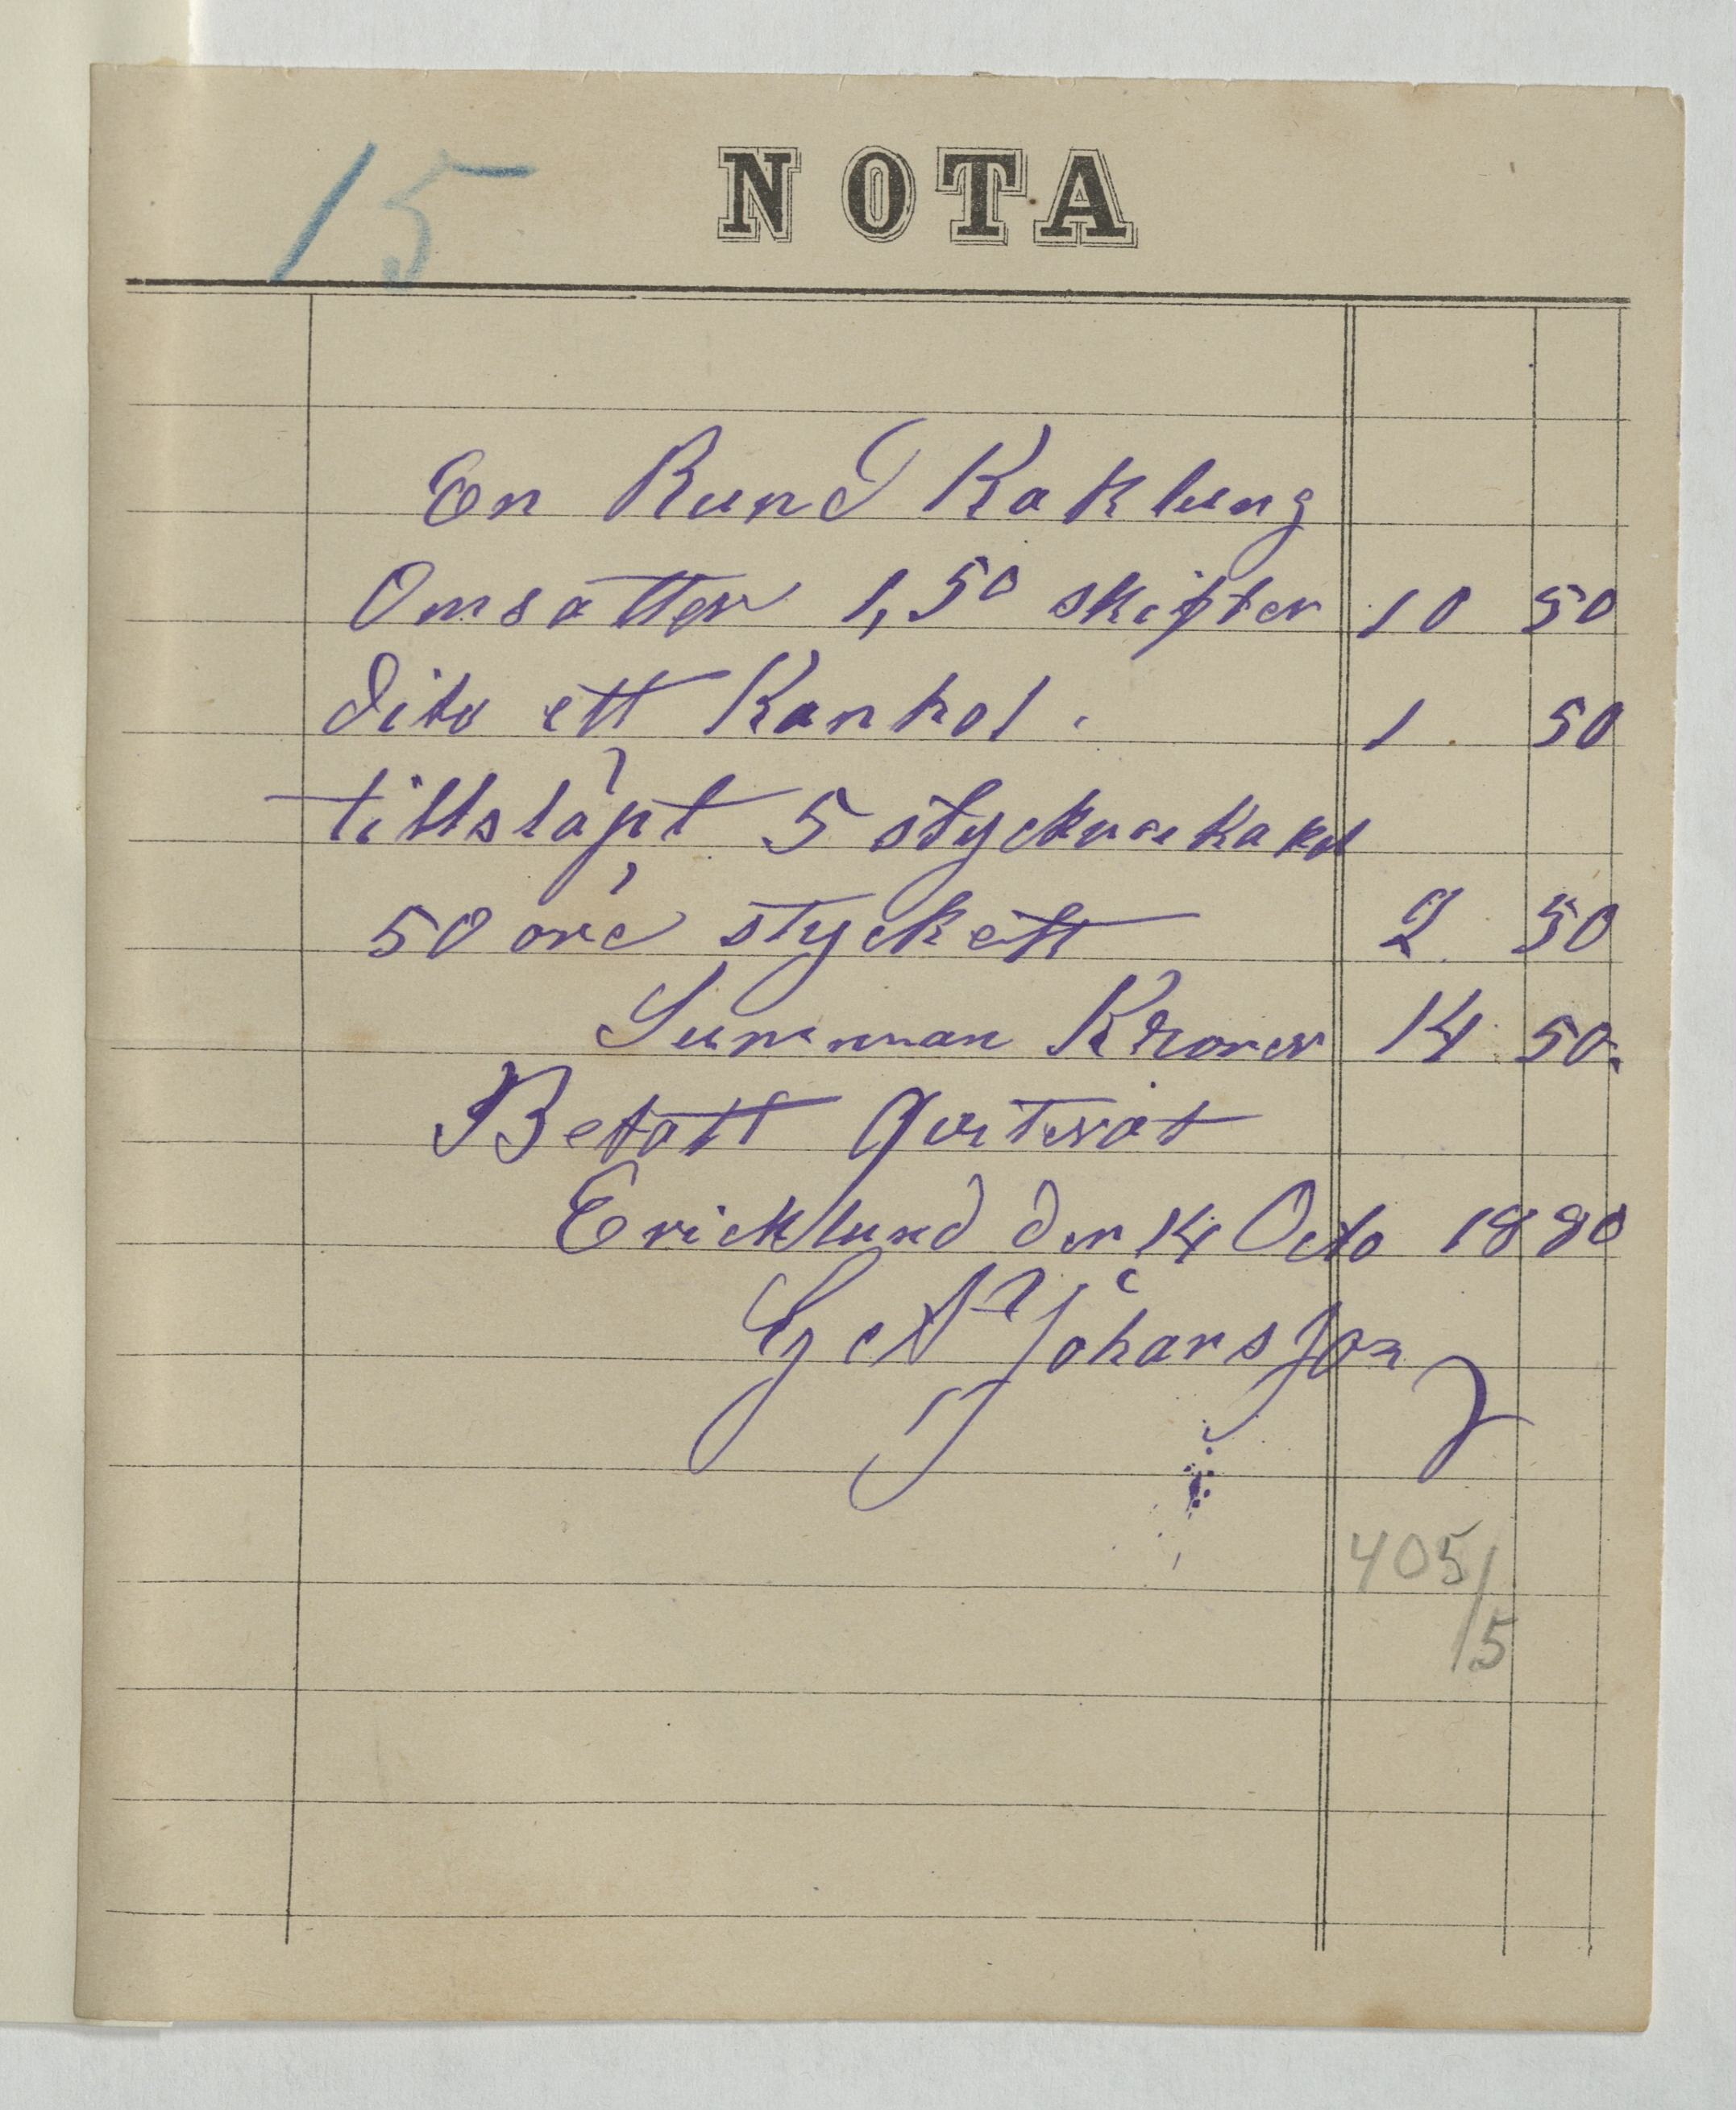 15
NOTA
En Rund Kaklung
Omsatter 1,50 skifter 10 50
dito ett Kanhol. 1 50
tillsläpt 5 stycken kakel
50 öre styckett 2 50
Summan Kronor 14 50
Betalt Qviteras
Ericklund den 14 Octo 1890
Johansson
405/5